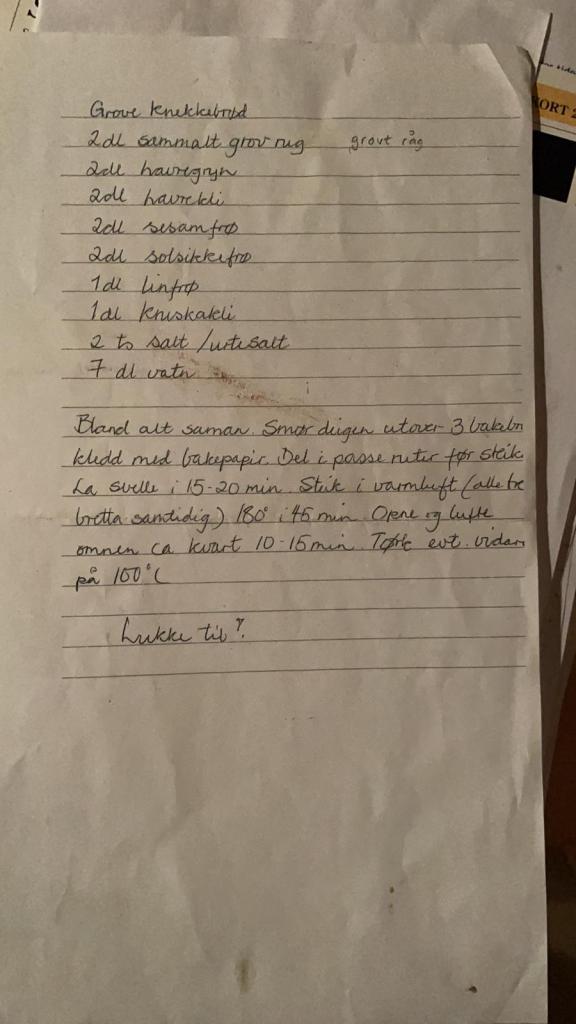 Grove knekkebrød
2dl sammalt grov rug grovt råg
2dl havregryn
2dl havrekli
2dl sesamfrø
2dl solsikkefrø
1dl linfrø
1dl kruskakli
2 ts salt /urtesalt
7 dl vatn
Bland alt saman. Smør deigen utover 3 bakebr
kledd med bakepapir. Del i passe ruter før steik
La svelle i 15-20 min. Steik i varmluft (alle tre
bretta samtidig) 180° i 45 min. Opne og lufte
omnen ca kvart 10-15 min. Tørk evt. vidare
på 100°C
Lukke til!
KORT 2